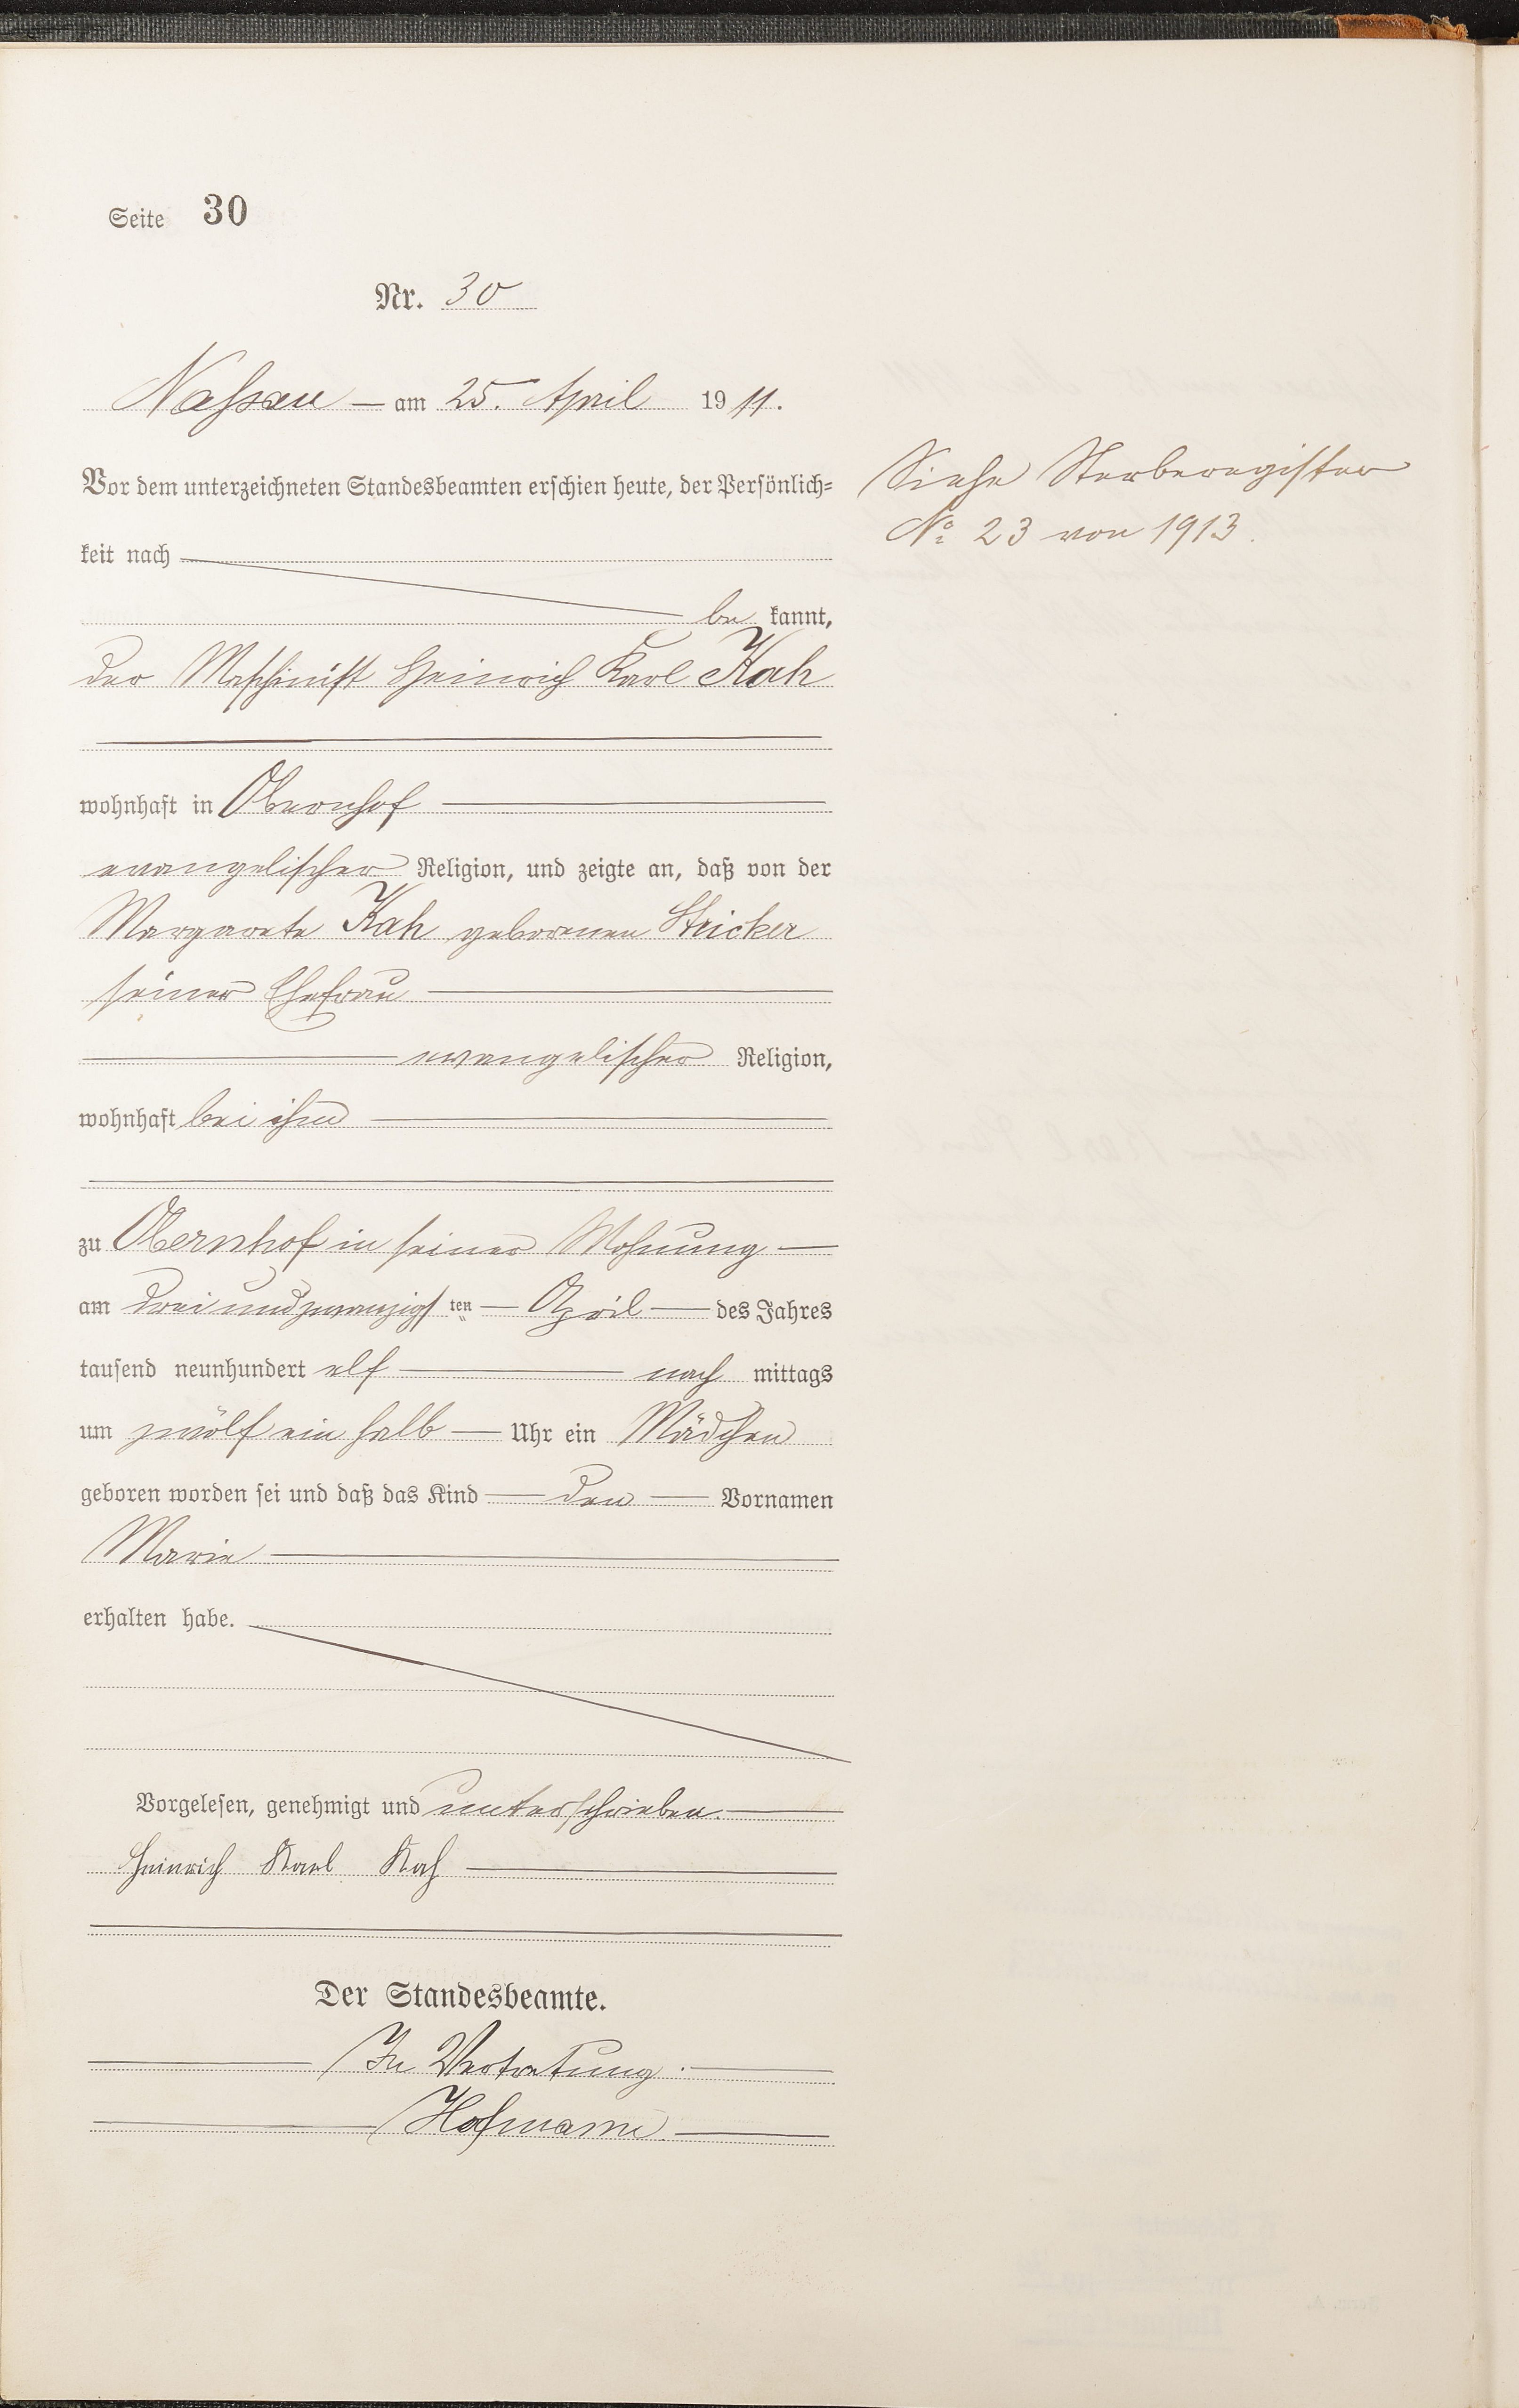 Seite 30
Nr. 30
Nassau — am 25. April 1911.
Vor dem unterzeichneten Standesbeamten erschien heute, der Persönlich=
keit nach
be kannt,
der Maschinist Heinrich Karl Kah
wohnhaft in Obernhof
evangelischer Religion, und zeigte an, daß von der
Margarete Kah geborenen Stricker
seiner Ehefrau
evangelischer Religion,
wohnhaft bei ihm
zu Obernhof in seiner Wohnung —
am drei und zwanzigsten — April — des Jahres
tausend neunhundert elf — nach mittags
um zwölf ein halb — Uhr ein Mädchen
geboren worden sei und daß das Kind — den — Vornamen
Marie
erhalten habe.
Vorgelesen, genehmigt und unterschrieben.
Heinrich Karl Kah
Der Standesbeamte.
In Vertretung.
Hofmann
Siehe Sterberegister
No 23 von 1913.